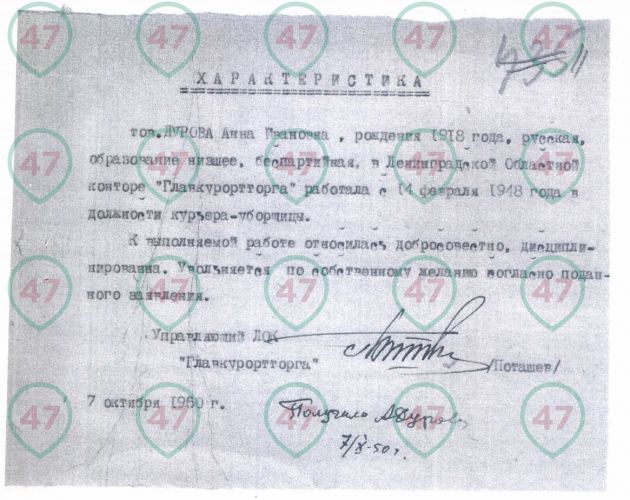 ХАРАКТЕРИСТИКА
тов. ДУРОВА Анна Ивановна , рождения 1918 года, русская,
образование низшее, беспартийная, в Ленинградской Областной
конторе "Главкурортторга" работала с 14 февраля 1948 года в
должности курьера-уборщицы.
К выполняемой работе относилась добросовестно, дисципли-
нирована. Увольняется по собственному желанию согласно подан-
ного заявления.
Управляющий ЛОК
"Главкурортторга" /Поташев/
7 октября 1950 г.
Получила АДурова
7/X-50 г.
47